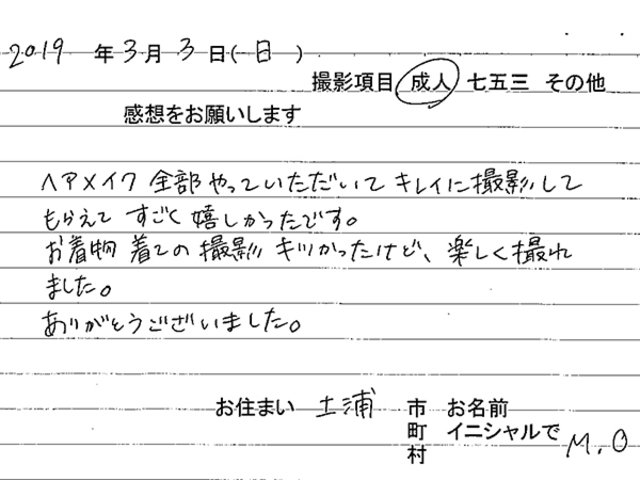 2019 年 3 月 3 日(日)
撮影項目 成人 七五三 その他
感想をお願いします
ヘアメイク 全部 やっていただいて キレイに撮影して
もらえて すごく 嬉しかったです。
お着物 着ての 撮影 キツかったけど、楽しく撮れ
ました。
ありがとうございました。
お住まい 土浦 市 お名前
町 イニシャルで M.O
村